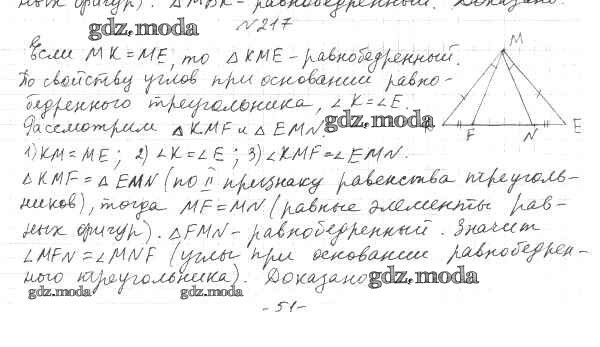 ных фигур). △МВК - равнобедренный. Доказано.
gdz.moda
№217
Если МК = МЕ, то △КМЕ - равнобедренный.
По свойству углов при основании равно-
бедренного треугольника, ∠К = ∠Е.
Рассмотрим △КМF и △ЕМN.
gdz.moda
1) КМ = МЕ; 2) ∠К = ∠Е; 3) ∠КМF = ∠ЕМN.
△КМF = △ЕМN (по II признаку равенства треуголь-
ников), тогда МF = МN (равные элементы рав-
ных фигур). △FMN - равнобедренный. Значит
∠МFN = ∠МNF (углы при основании равнобедрен-
ного треугольника). Доказано
gdz.moda
gdz.moda
gdz.moda
- 51 -
M
F
N
E